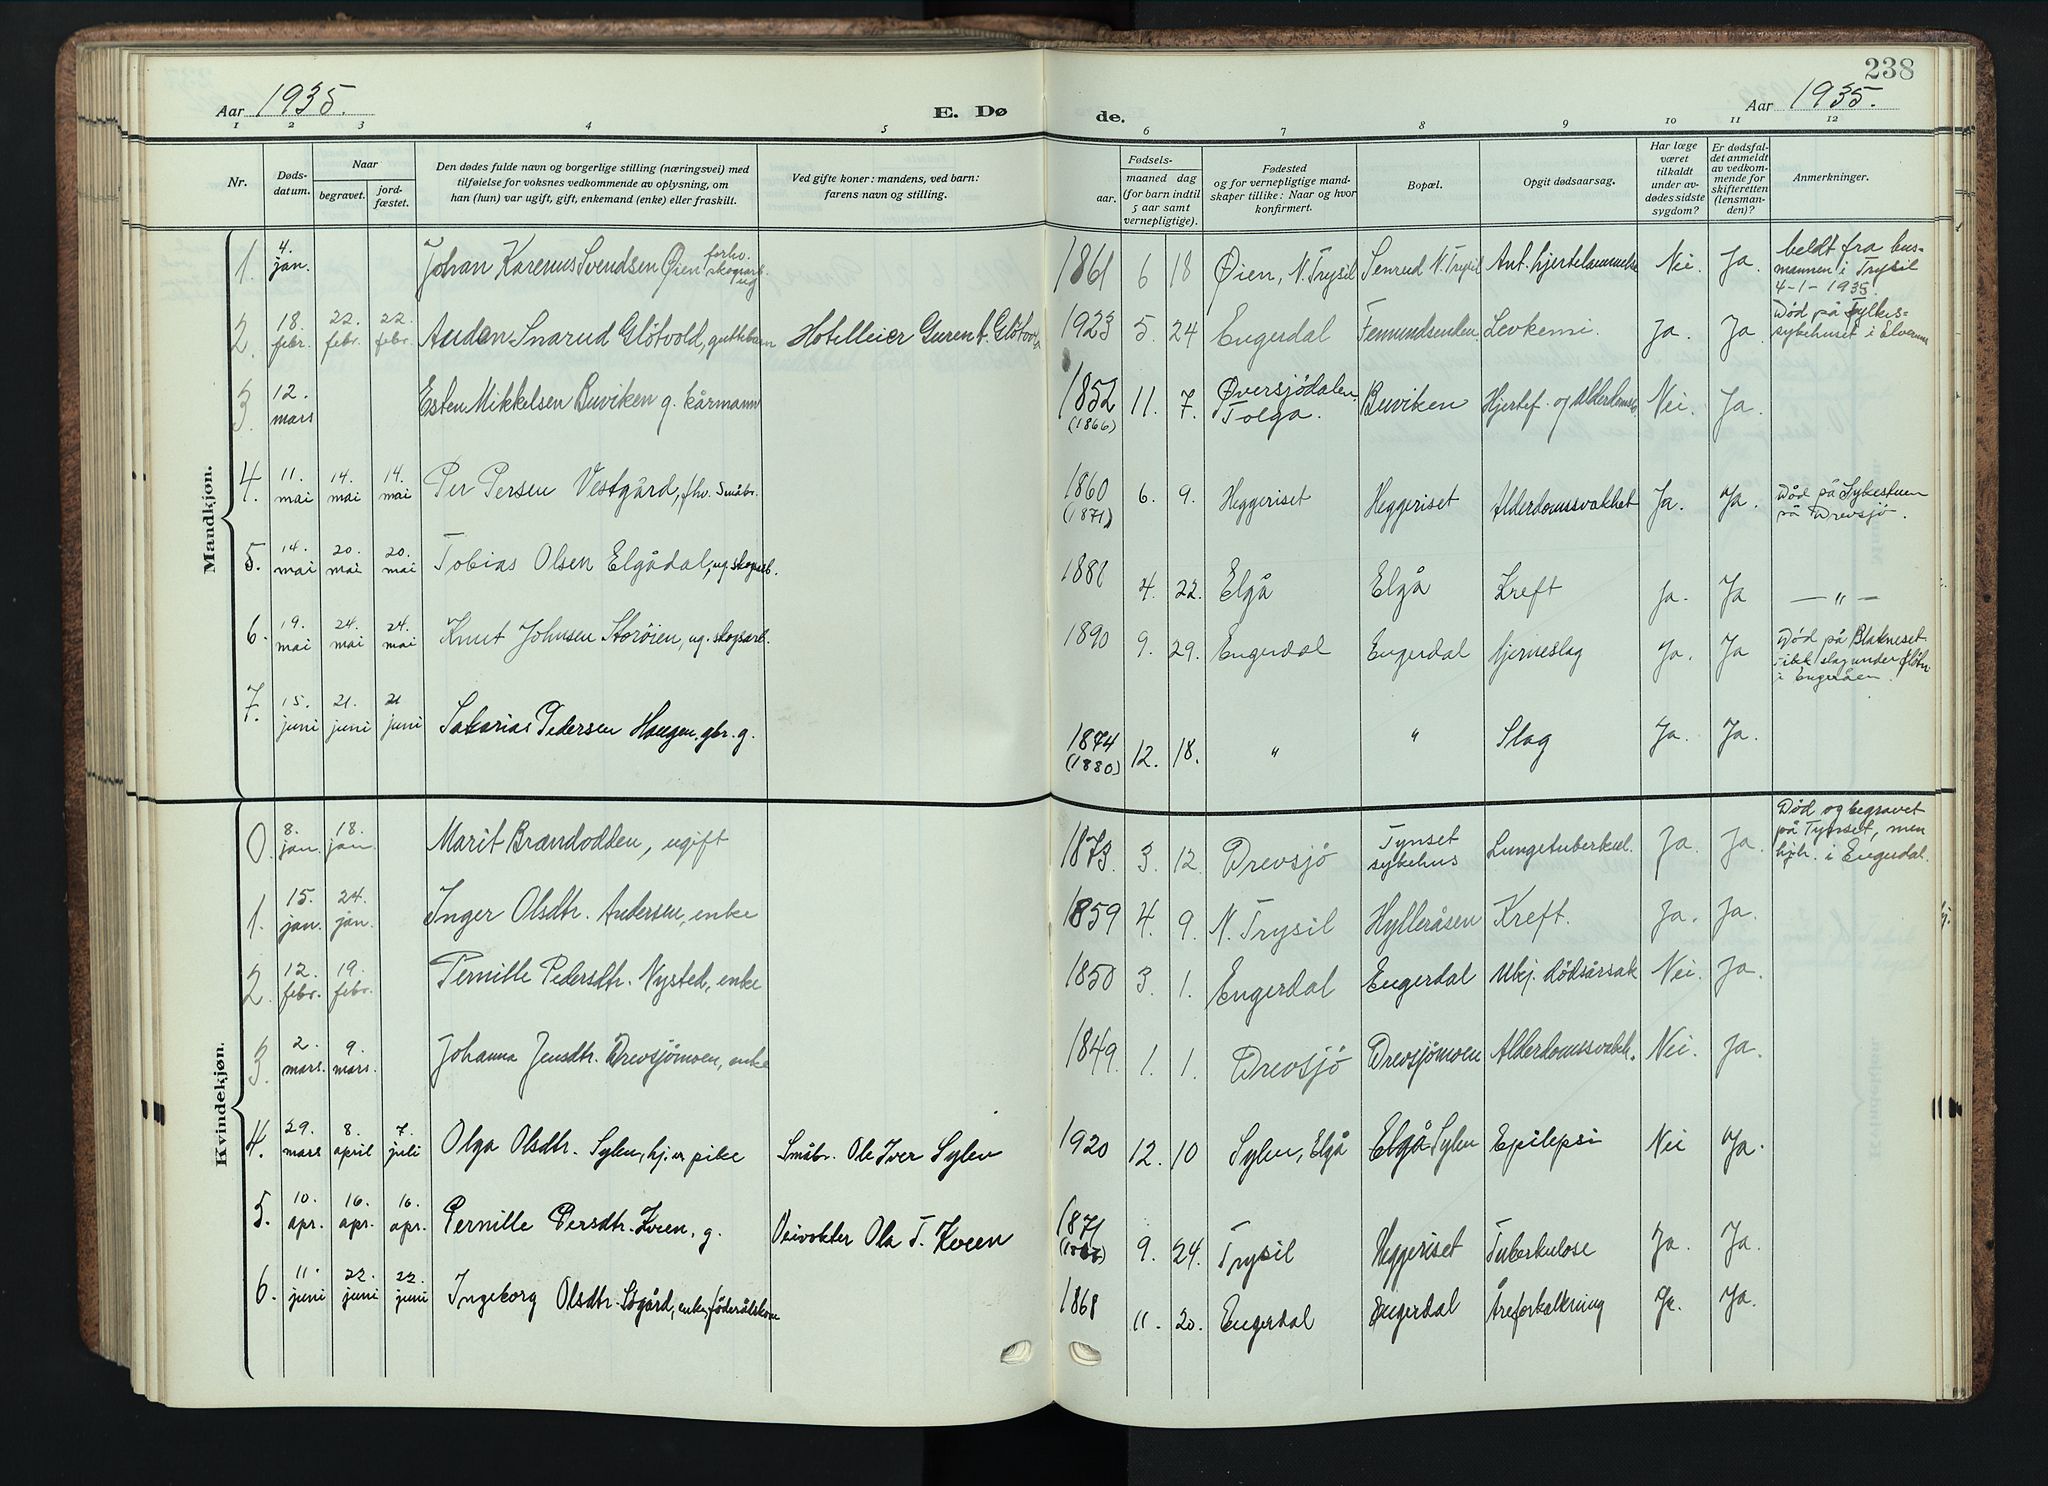 238
Aar 1935.
E. Dø de.
Aar 1935.
1 2 3 4 5 6 7 8 9 10 11 12
Nr.
Døds-
datum.
Naar
begravet.
jord-
fæstet.
Den dødes fulde navn og borgerlige stilling (næringsvei) med
tilføielse for voksnes vedkommende av oplysning, om
han (hun) var ugift, gift, enkemand (enke) eller fraskilt.
Ved gifte koner: mandens, ved barn:
farens navn og stilling.
Fødsels-
aar.
maaned dag
(for barn indtil
5 aar samt
vernepligtige).
Fødested
og for vernepligtige mand-
skaper tillike: Naar og hvor
konfirmert.
Bopæl.
Opgit dødsaarsag.
Har læge
været
tilkaldt
under av-
dødes sidste
sygdom?
Er dødsfal-
det anmeldt
av vedkom-
mende for
skifteretten
(lensman-
den)?
Anmerkninger.
Mandkjøn.
1. 4. jan. Johan Karenus Svendsen Øien forhv. skogsarb. ug 1861 6 18 Øien, N. Trysil Senrud N. Trysil Ant. hjertelammelse Nei. Ja. meldt fra lens-
mannen i Trysil
4-1-1935.
2. 18. febr. 22. febr. 22. febr. Audun Snarud Glötvold, guttebarn Hotelleier Guren A. Glötvold 1923 5. 24 Engerdal Femundsenden Levkemi. Ja. Ja. Död på Fylkes-
sykehuset i Elverum
3. 12. mars Esten Mikkelsen Buviken g. kårmann 1852 (1866) 11. 7. Øversjödalen, Tolga. Buviken Hjertef. og Alderdomsv. Nei. Ja.
4. 11. mai 14. mai 14. mai Per Persen Vestgård, fhv. Småbr. 1860 (1871) 6. 9. Heggeriset Heggeriset Alderdomssvakhet Ja. Ja. Död på Sykestuen
på Drevsjö.
5. 14. mai 20. mai 20. mai Tobias Olsen Elgådal, ug. skogsarb. 1881 4. 22. Elgå Elgå Kreft Ja. Ja — " —
6. 19. mai 24. mai 24. mai Knut Johnsen Storöien, ug. skogsarb. 1890 9. 29. Engerdal Engerdal hjerneslag Ja. Ja Död på Blakneset
fikk slag under flötn.
i Engeråen.
7. 15. juni 21. juni 21 juni Sakarias Pedersen Haugen. gbr. g. 1874 (1880) 12. 18. " " Slag Ja. Ja.
Kvindekjøn.
0. 8. jan. 18. jan Marit Brændodden, ugift 1873. 3. 12. Drevsjö Tynset sykehus Lungetuberkul. Ja. Ja. Död og begravet
på Tynset, men
hjh. i Engerdal.
1. 15. jan. 24. jan. Inger Olsdtr. Andersen, enke 1859 4. 9. N. Trysil Hylleråsen Kreft. Ja. Ja.
2. 12. febr. 19. febr. Pernille Pedersdtr. Nysted, enke 1850 3. 1. Engerdal Engerdal Ukj. dödsårsak Nei. Ja.
3. 2. mars. 9. mars. Johanna Jensdtr. Drevsjömoen, enke 1849. 1. 1. Drevsjö Drevsjömoen Alderdomssvakh. Nei. Ja.
4. 29. mars 8. april 7. juli Olga Olsdtr. Sylen, hj. v. pike Småbr. Ole Iver Sylen 1920 12. 10 Sylen, Elgå Elgå Sylen Epilepsi Nei Ja.
5. 10. apr. 16. apr. 16. apr. Pernille Persdtr. Kveen, g. Veivokter Ola T. Kveen 1871 9. 24. Trysil Heggeriset Tuberkulose Ja. Ja.
6. 11. juni 22. juni 22. juni Ingeborg Olsdtr. Sögård, enke, föderådskone 1868 11. 20. Engerdal Engerdal Åreforkalkning Ja. Ja.